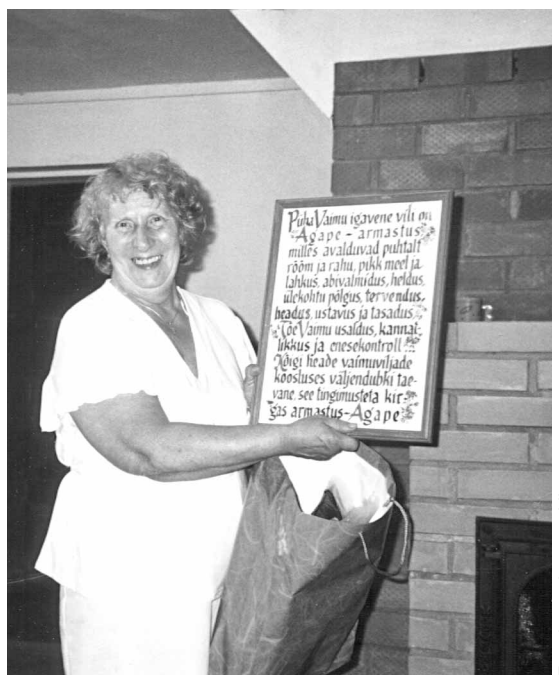 Püha Vaimu igavene vili on
Agape - armastus
milles avalduvad puhtalt
rõõm ja rahu, pikk meel ja
lahkus, abivalmidus, heldus,
ülekohtu põlgus, tervendus,
headus, ustavus ja tasadus,
Tõe Vaimu usaldus, kannat-
likkus ja enesekontroll...
Kõigi heade vaimuviljade
koosluses väljendubki tae-
vane, see tingimusteta kir-
gas armastus-Agape